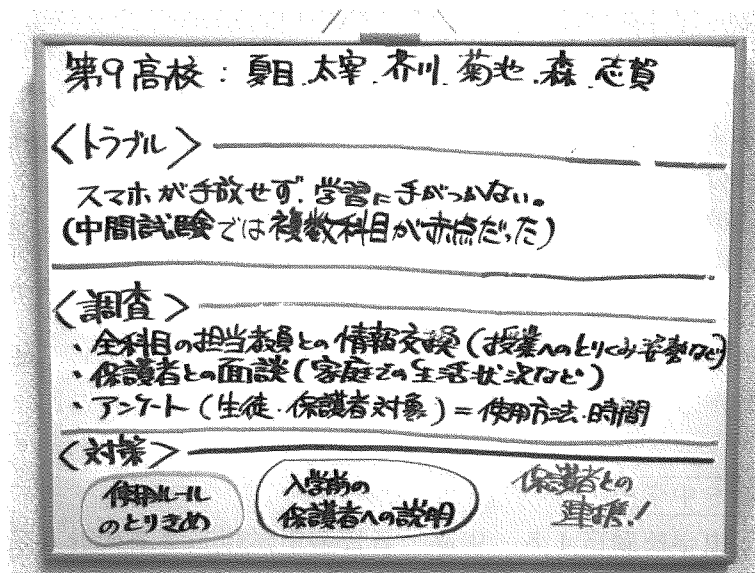 第9高校：夏目.太宰.芥川.菊池.森.志賀
〈トラブル〉
スマホが手放せず、学習に手がつかない。
(中間試験では複数科目が赤点だった)
〈調査〉
・全科目の担当教員との情報交換(授業へのとりくみ姿勢など)
・保護者との面談(家庭での生活状況など)
・アンケート(生徒・保護者対象)=使用方法・時間
〈対策〉
使用ルール
のとりきめ
入学前の
保護者への説明
保護者との
連携！